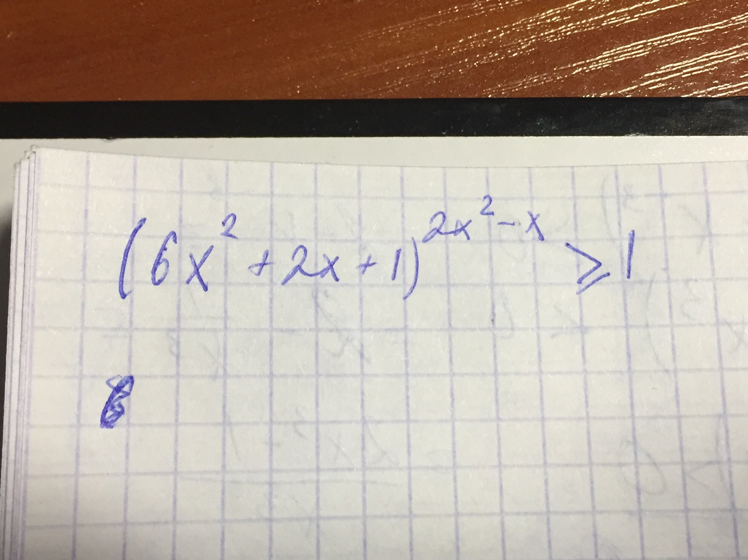 (6x² + 2x + 1)^(2x² - x) ⩾ 1